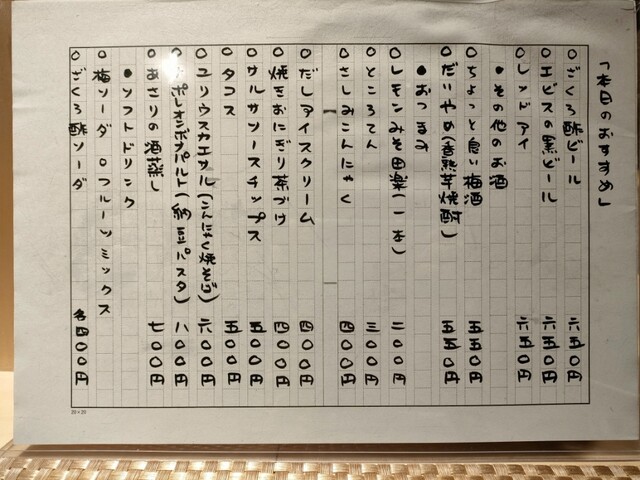 「本日のおすすめ」
○ざくろ酢ビール 六五〇円
○エビスの黒ビール 六五〇円
○レッドアイ 六五〇円
●その他のお酒
○ちょっと良い梅酒 五五〇円
○だいやめ(香熟芋焼酎) 五五〇円
●おつまみ
○レモンみそ田楽(一本) 二〇〇円
○ところてん 三〇〇円
○さしみこんにゃく 四〇〇円
○だしアイスクリーム 四〇〇円
○焼きおにぎり茶づけ 四〇〇円
○サルサソースチップス 五〇〇円
○タコス 五〇〇円
○ユリウスカエサル(こんにゃく焼そば) 六〇〇円
○ナポレオンボナパルト(納豆パスタ) 八〇〇円
○あさりの酒蒸し 七〇〇円
●ソフトドリンク
○梅ソーダ ○フルーツミックス
○ざくろ酢ソーダ 各四〇〇円
20×20